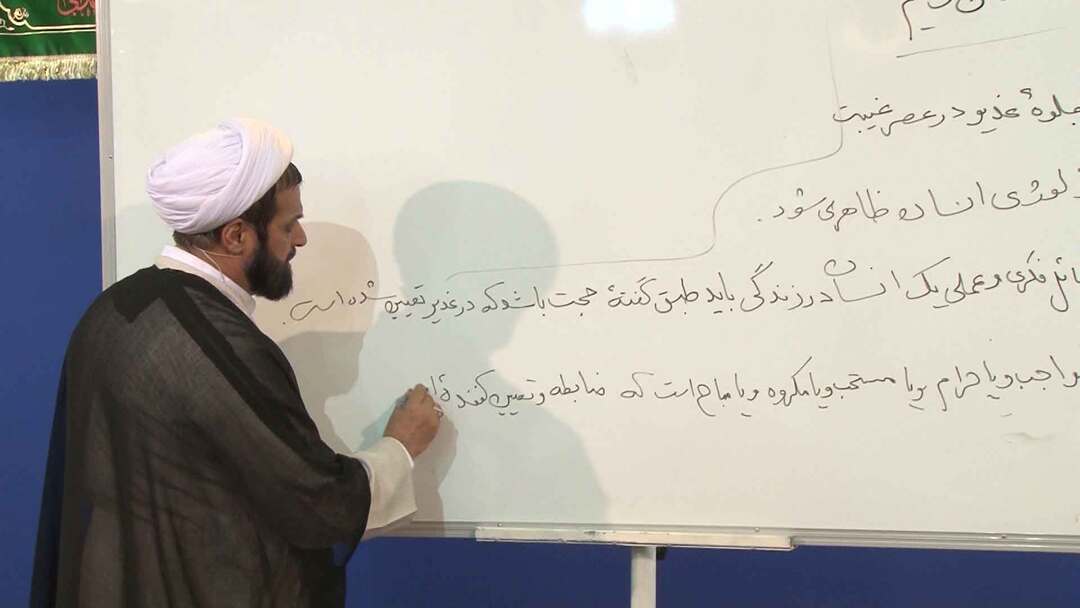 جلوهٔ غدیر در عصر غیبت
انسان ظاهر می شود.
فکری و عملی یک انسان در زندگی باید طبق گفتهٔ حجت باشد که در غدیر تعیین شده است.
واجب و یا حرام و یا مستحب و یا مکروه و یا مباح است که ضابطه و تعیین کنندهٔ